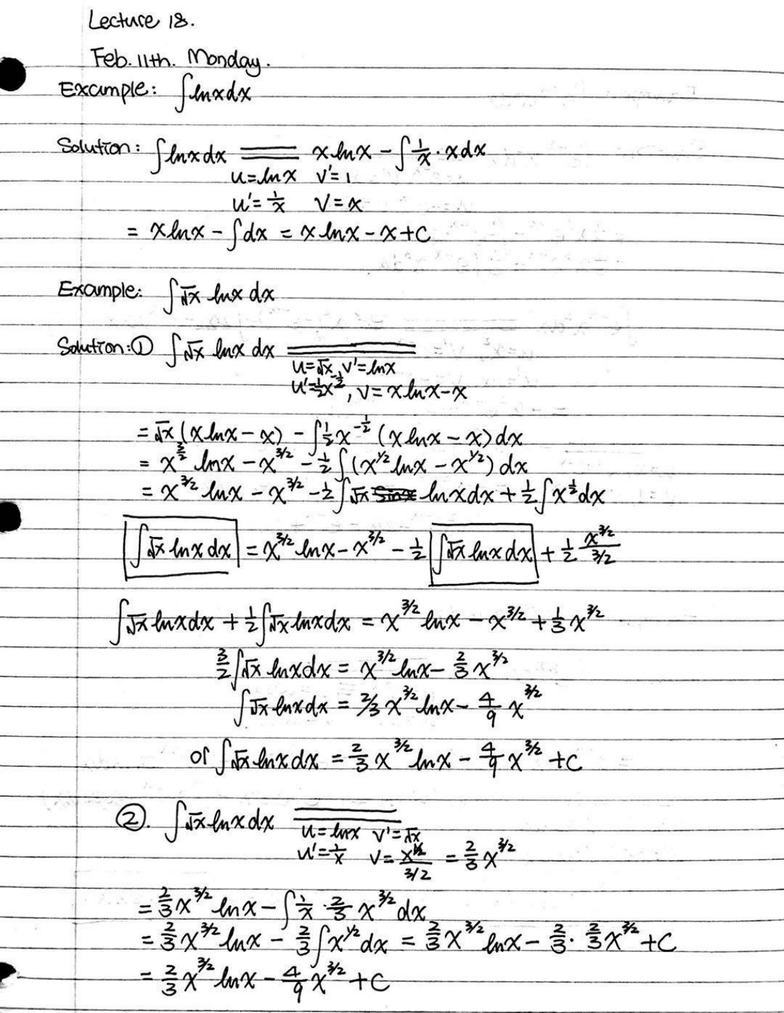 Lecture 18.
Feb. 11th. Monday.
Example: ∫lnxdx
Solution: ∫lnxdx ═══ xlnx - ∫1/x · xdx
u=lnx v'=1
u'=1/x v=x
= xlnx - ∫dx = xlnx - x + C
Example: ∫√x lnx dx
Solution: ① ∫√x lnx dx ═══
u=√x, v'=lnx
u'=½x^(-½), v=xlnx-x
= √x (xlnx - x) - ∫½x^(-½) (xlnx - x)dx
= x^(3/2) lnx - x^(3/2) - ½∫(x^(1/2) lnx - x^(1/2))dx
= x^(3/2) lnx - x^(3/2) - ½∫√x lnxdx + ½∫x^(½)dx
∫√x lnx dx = x^(3/2) lnx - x^(3/2) - ½ ∫√x lnx dx + ½ x^(3/2)/(3/2)
∫√x lnxdx + ½∫√x lnxdx = x^(3/2) lnx - x^(3/2) + ⅓x^(3/2)
3/2 ∫√x lnxdx = x^(3/2) lnx - ⅔x^(3/2)
∫√x lnxdx = 2/3 x^(3/2) lnx - 4/9 x^(3/2)
or ∫√x lnxdx = 2/3 x^(3/2) lnx - 4/9 x^(3/2) + C
②. ∫√x lnxdx ═══
u=lnx v'=√x
u'=1/x v= x^(3/2)/(3/2) = 2/3 x^(3/2)
= 2/3 x^(3/2) lnx - ∫1/x · 2/3 x^(3/2) dx
= 2/3 x^(3/2) lnx - 2/3 ∫x^(1/2) dx = 2/3 x^(3/2) lnx - 2/3 · 2/3 x^(3/2) + C
= 2/3 x^(3/2) lnx - 4/9 x^(3/2) + C